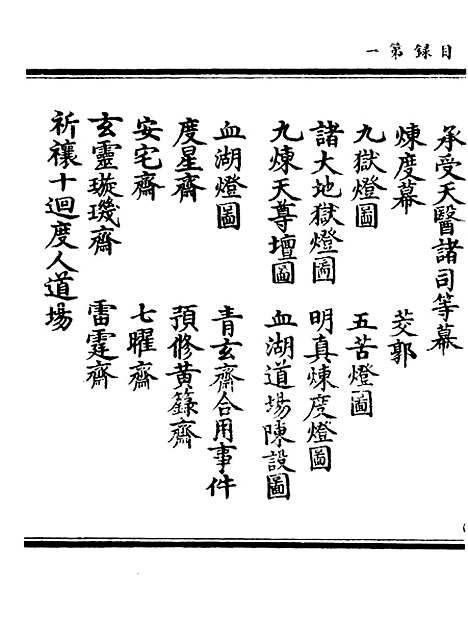 目録第一
承受天醫諸司等幕
煉度幕 茭郭
九獄燈圖 五苦燈圖
諸大地獄燈圖 明真煉度燈圖
九煉天尊壇圖 血湖道場陳設圖
血湖燈圖 青玄齋合用事件
度星齋 預修黃籙齋
安宅齋 七曜齋
玄靈璇璣齋 雷霆齋
祈禳十迴度人道場